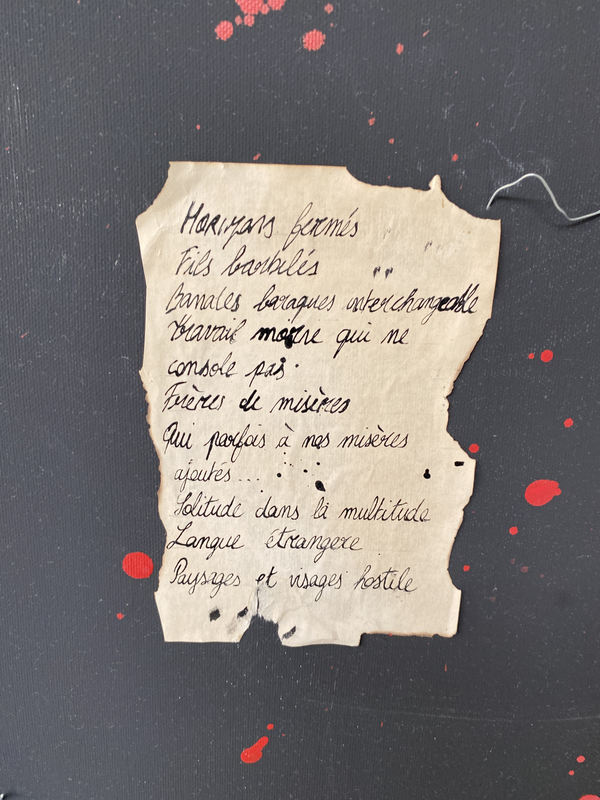 Horizons fermés
Fils barbelés
Banales baraques interchangeable
travail morne qui ne
console pas.
Frères de misères
Qui parfois à nos misères
ajoutés...
Solitude dans la multitude
Langue étrangere
Paysages et visages hostile